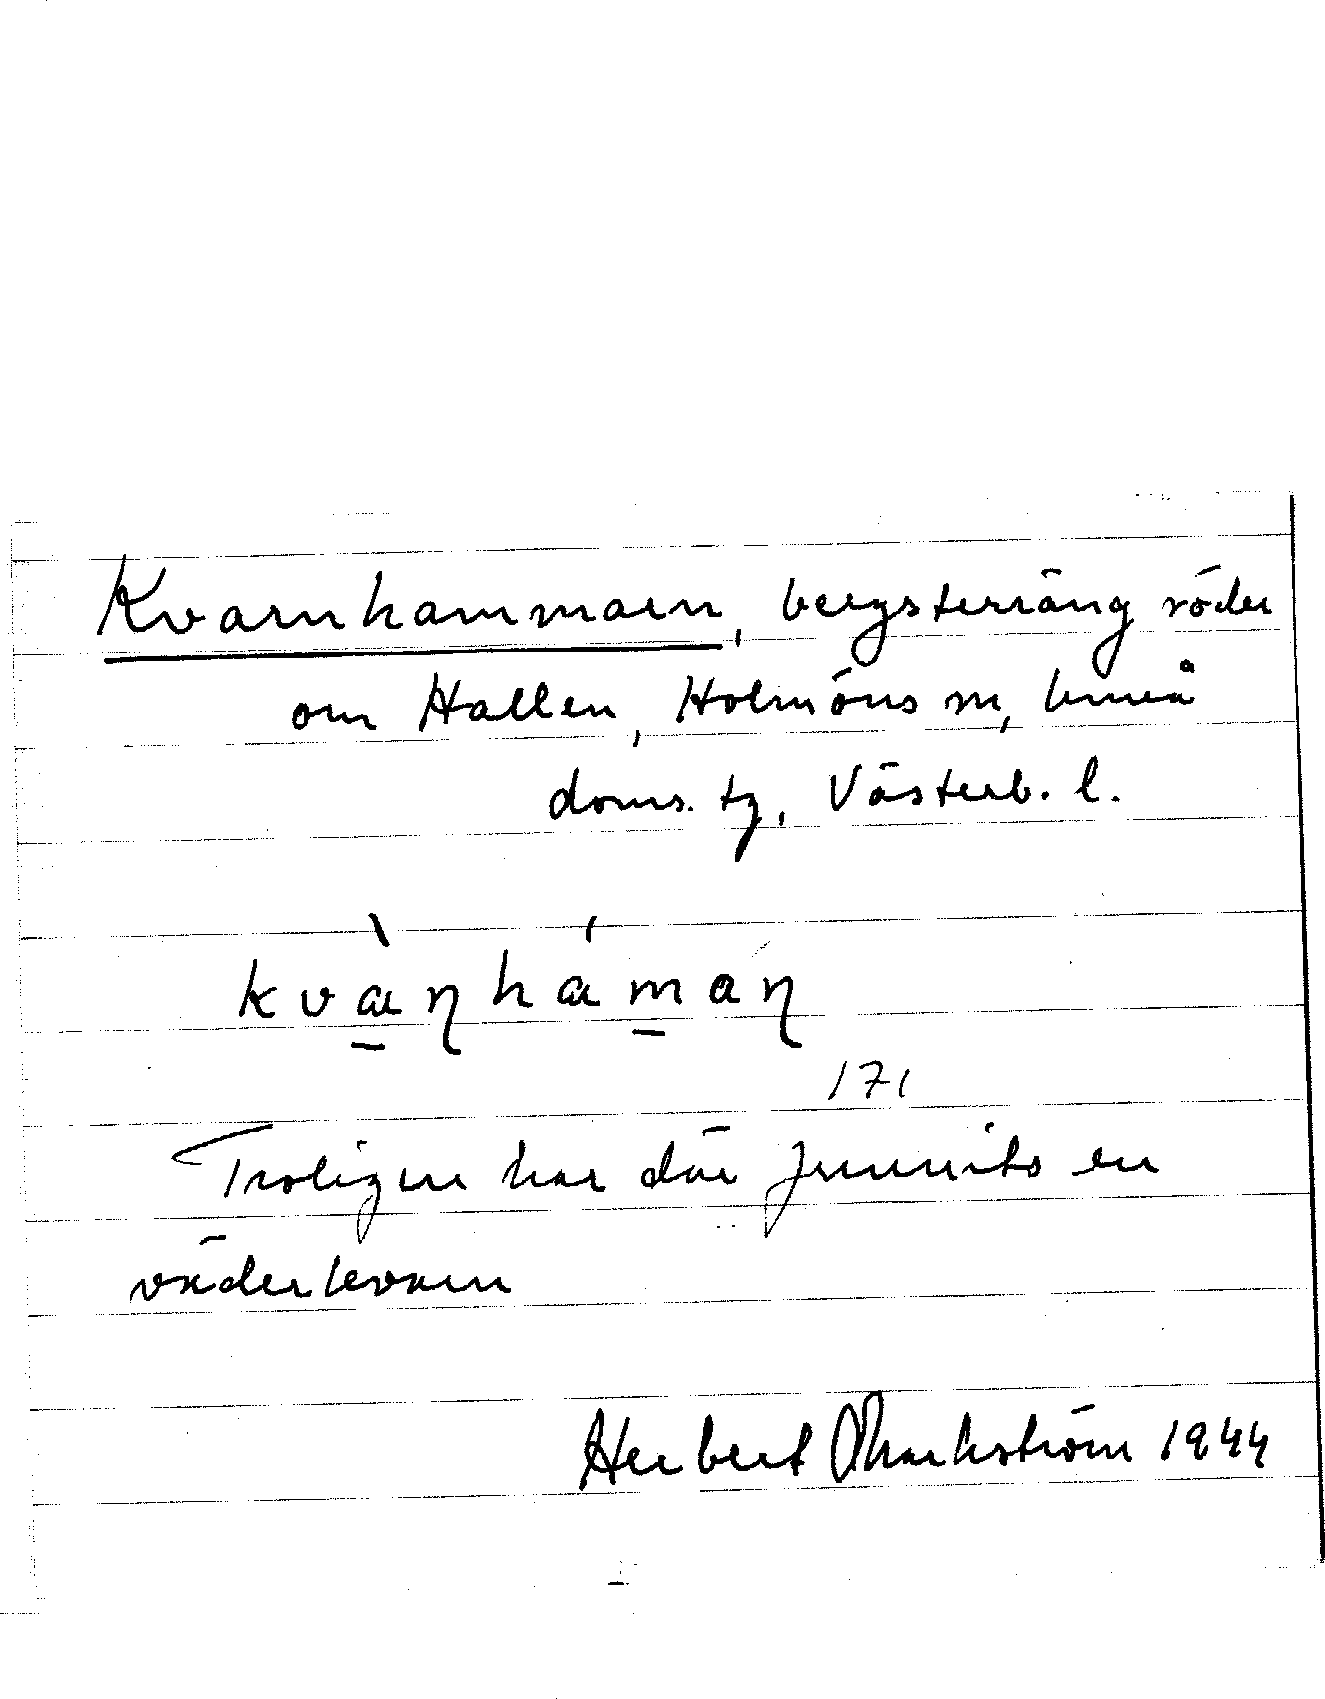 Kvarnhammarn, bergsterräng söder
om Hallen, Holmöns sn, Umeå
doms. tg, Västerb. l.
kvànháman
171
Troligen har där funnits en
väderkvarn
Herbert Markström 1944